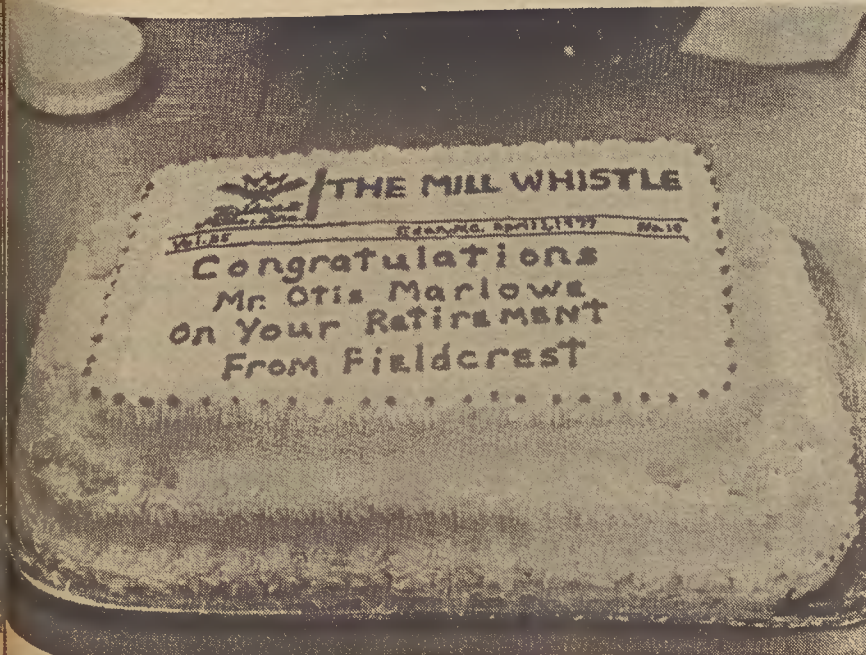 THE MILL WHISTLE
Vol. 35 Eden, NC. April 1, 1977 No. 10
Congratulations
Mr. Otis Marlowe
on Your Retirement
From Fieldcrest